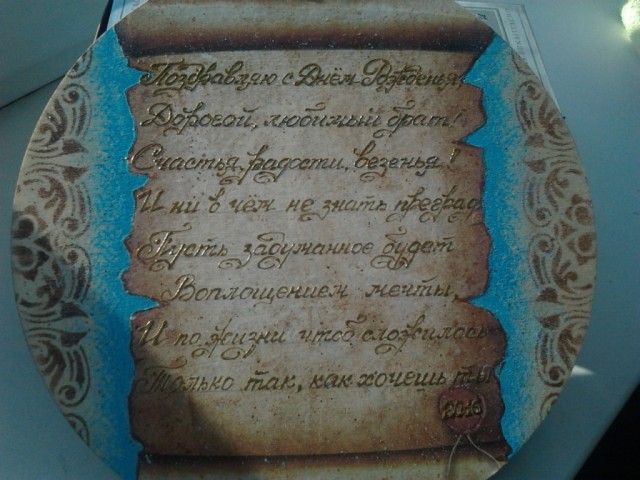 Поздравляю с Днём Рожденья,
Дорогой, любимый брат!
Счастья, радости, везенья!
И ни в чём не знать преград.
Пусть задуманное будет
Воплощением мечты,
И по жизни чтоб сложилось
Только так, как хочешь ты!